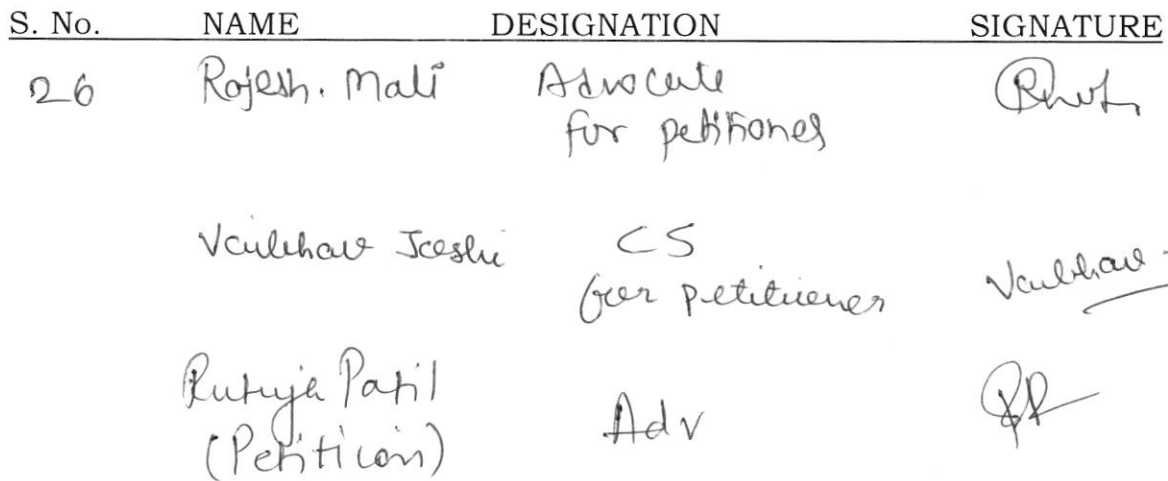 S. No. NAME DESIGNATION SIGNATURE
26 Rajesh. Mali Advocate
for petitioner
Vaibhav Joshi CS Vaibhav
for petitioner
Rutuja Patil Adv
(Petition)